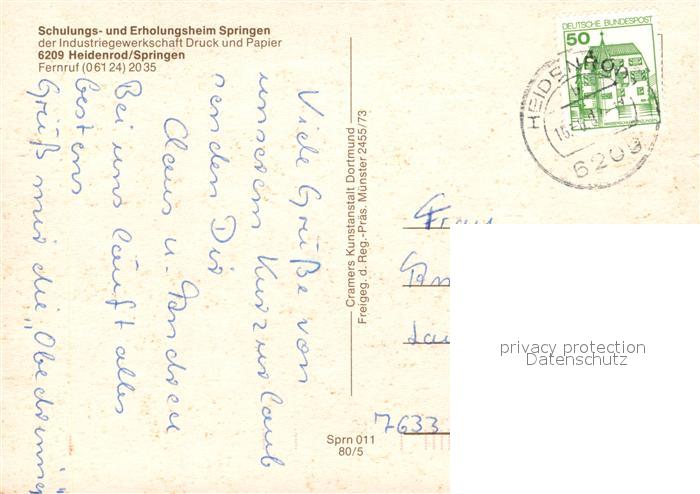 Schulungs- und Erholungsheim Springen
der Industriegewerkschaft Druck und Papier
6209 Heidenrod/Springen
Fernruf (06124) 2035
Viele Grüße von
unserem Kurzurlaub
senden Dir
Claus u.
Bei uns läuft alles
bestens
Grüß mir die
Cramers Kunstanstalt Dortmund
Freigeg. d. Reg.-Präs. Münster 2455/73
Sprn 011
80/5
DEUTSCHE BUNDESPOST
50
HEIDENROD
6209
Frau
7633
privacy protection
Datenschutz